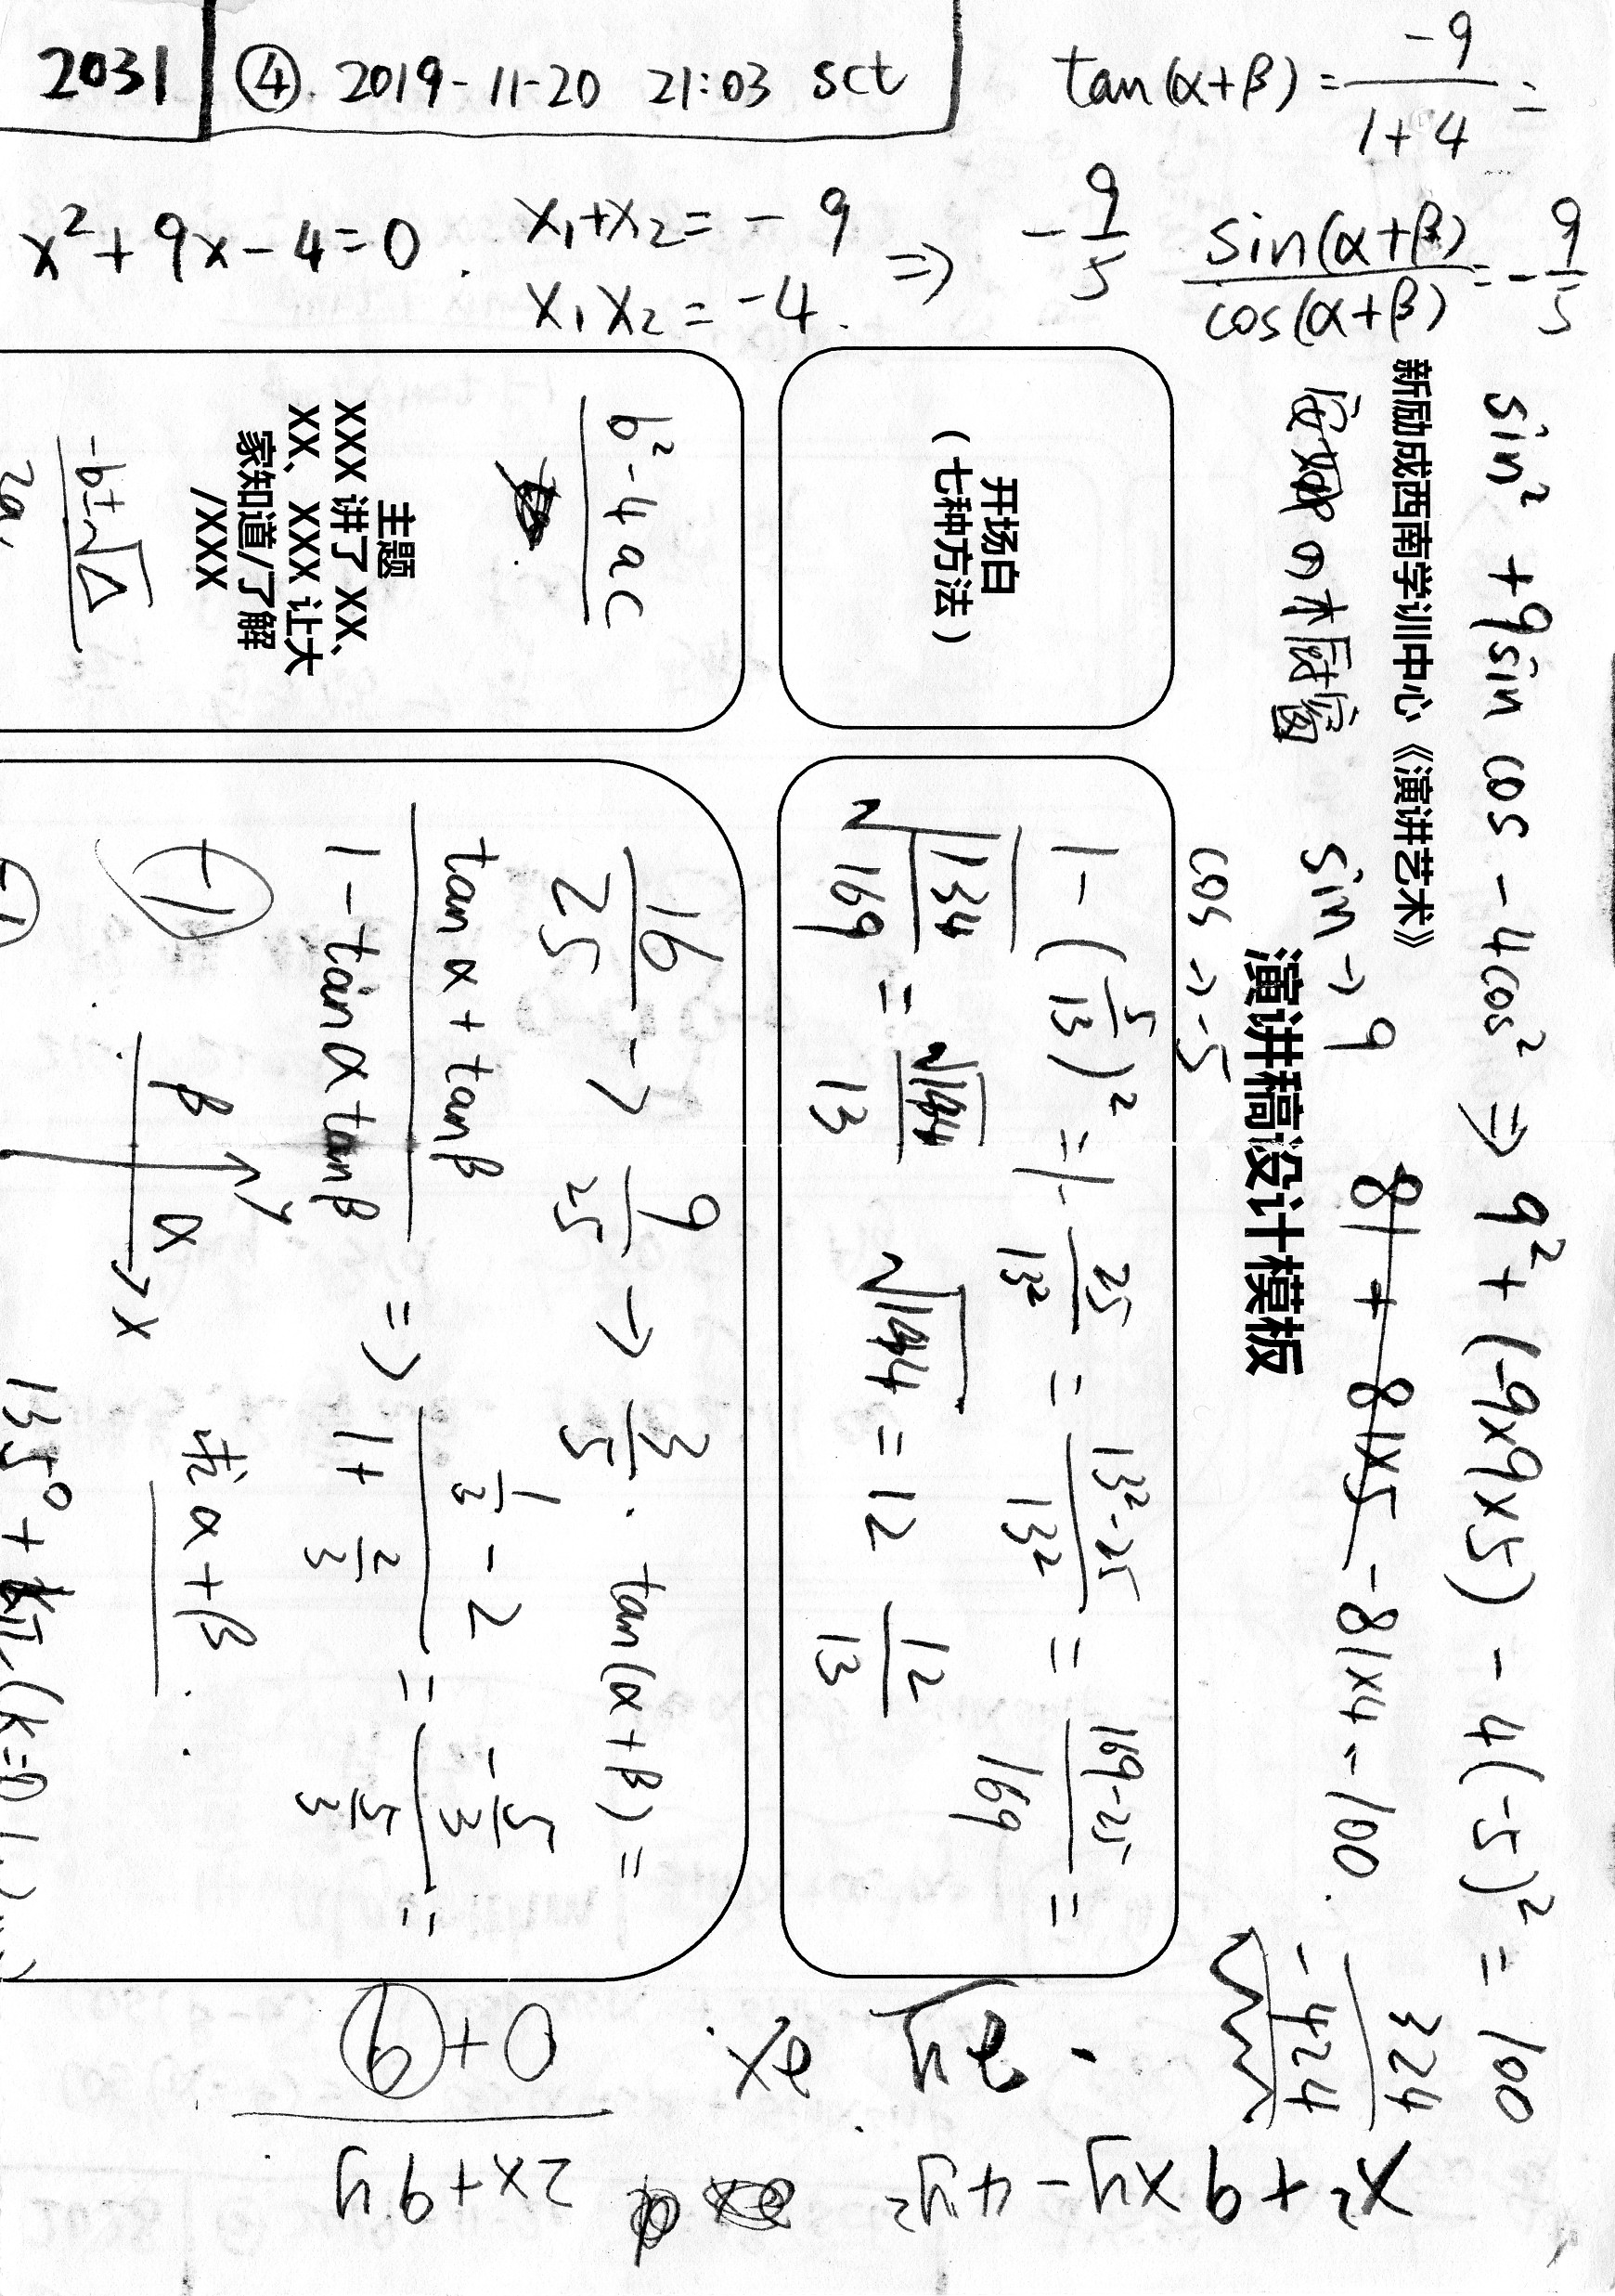 2031 ④. 2019-11-20 21:03 sct
tan(α+β) = -9/(1+4) =
x²+9x-4=0. x₁+x₂=-9
x₁x₂=-4. ⇒ -9/5
sin(α+β)/cos(α+β) = -9/5
sin² + 9sin cos - 4cos² ⇒ 9² + (-9x9x5) - 4(-5)² = 100
新励成西南学训中心《演讲艺术》
sin → 9
81 + 81x5 - 81x4 - 100.
324
-424
cos → -5
演讲稿设计模板
开场白
(七种方法)
1-(5/13)² = 1-25/13² = (13²-25)/13² = (169-25)/169 =
√134/169 = √144/13 √144 = 12 12/13
b²-4ac
主题
XXX 讲了 XX、
XX、XXX 让大
家知道/了解
/XXX
-b±√Δ
2a
16/25 -7 9/25 → 3/5. tan(α+β) =
(tanα+tanβ)/(1-tanαtanβ) ⇒ (1/3-2)/(1+2/3) = (-5/3)/(5/3) =
-1
β α y x
求 α+β.
135°+kπ (k=0
x²+9xy-4y²
2x+9y
0+9